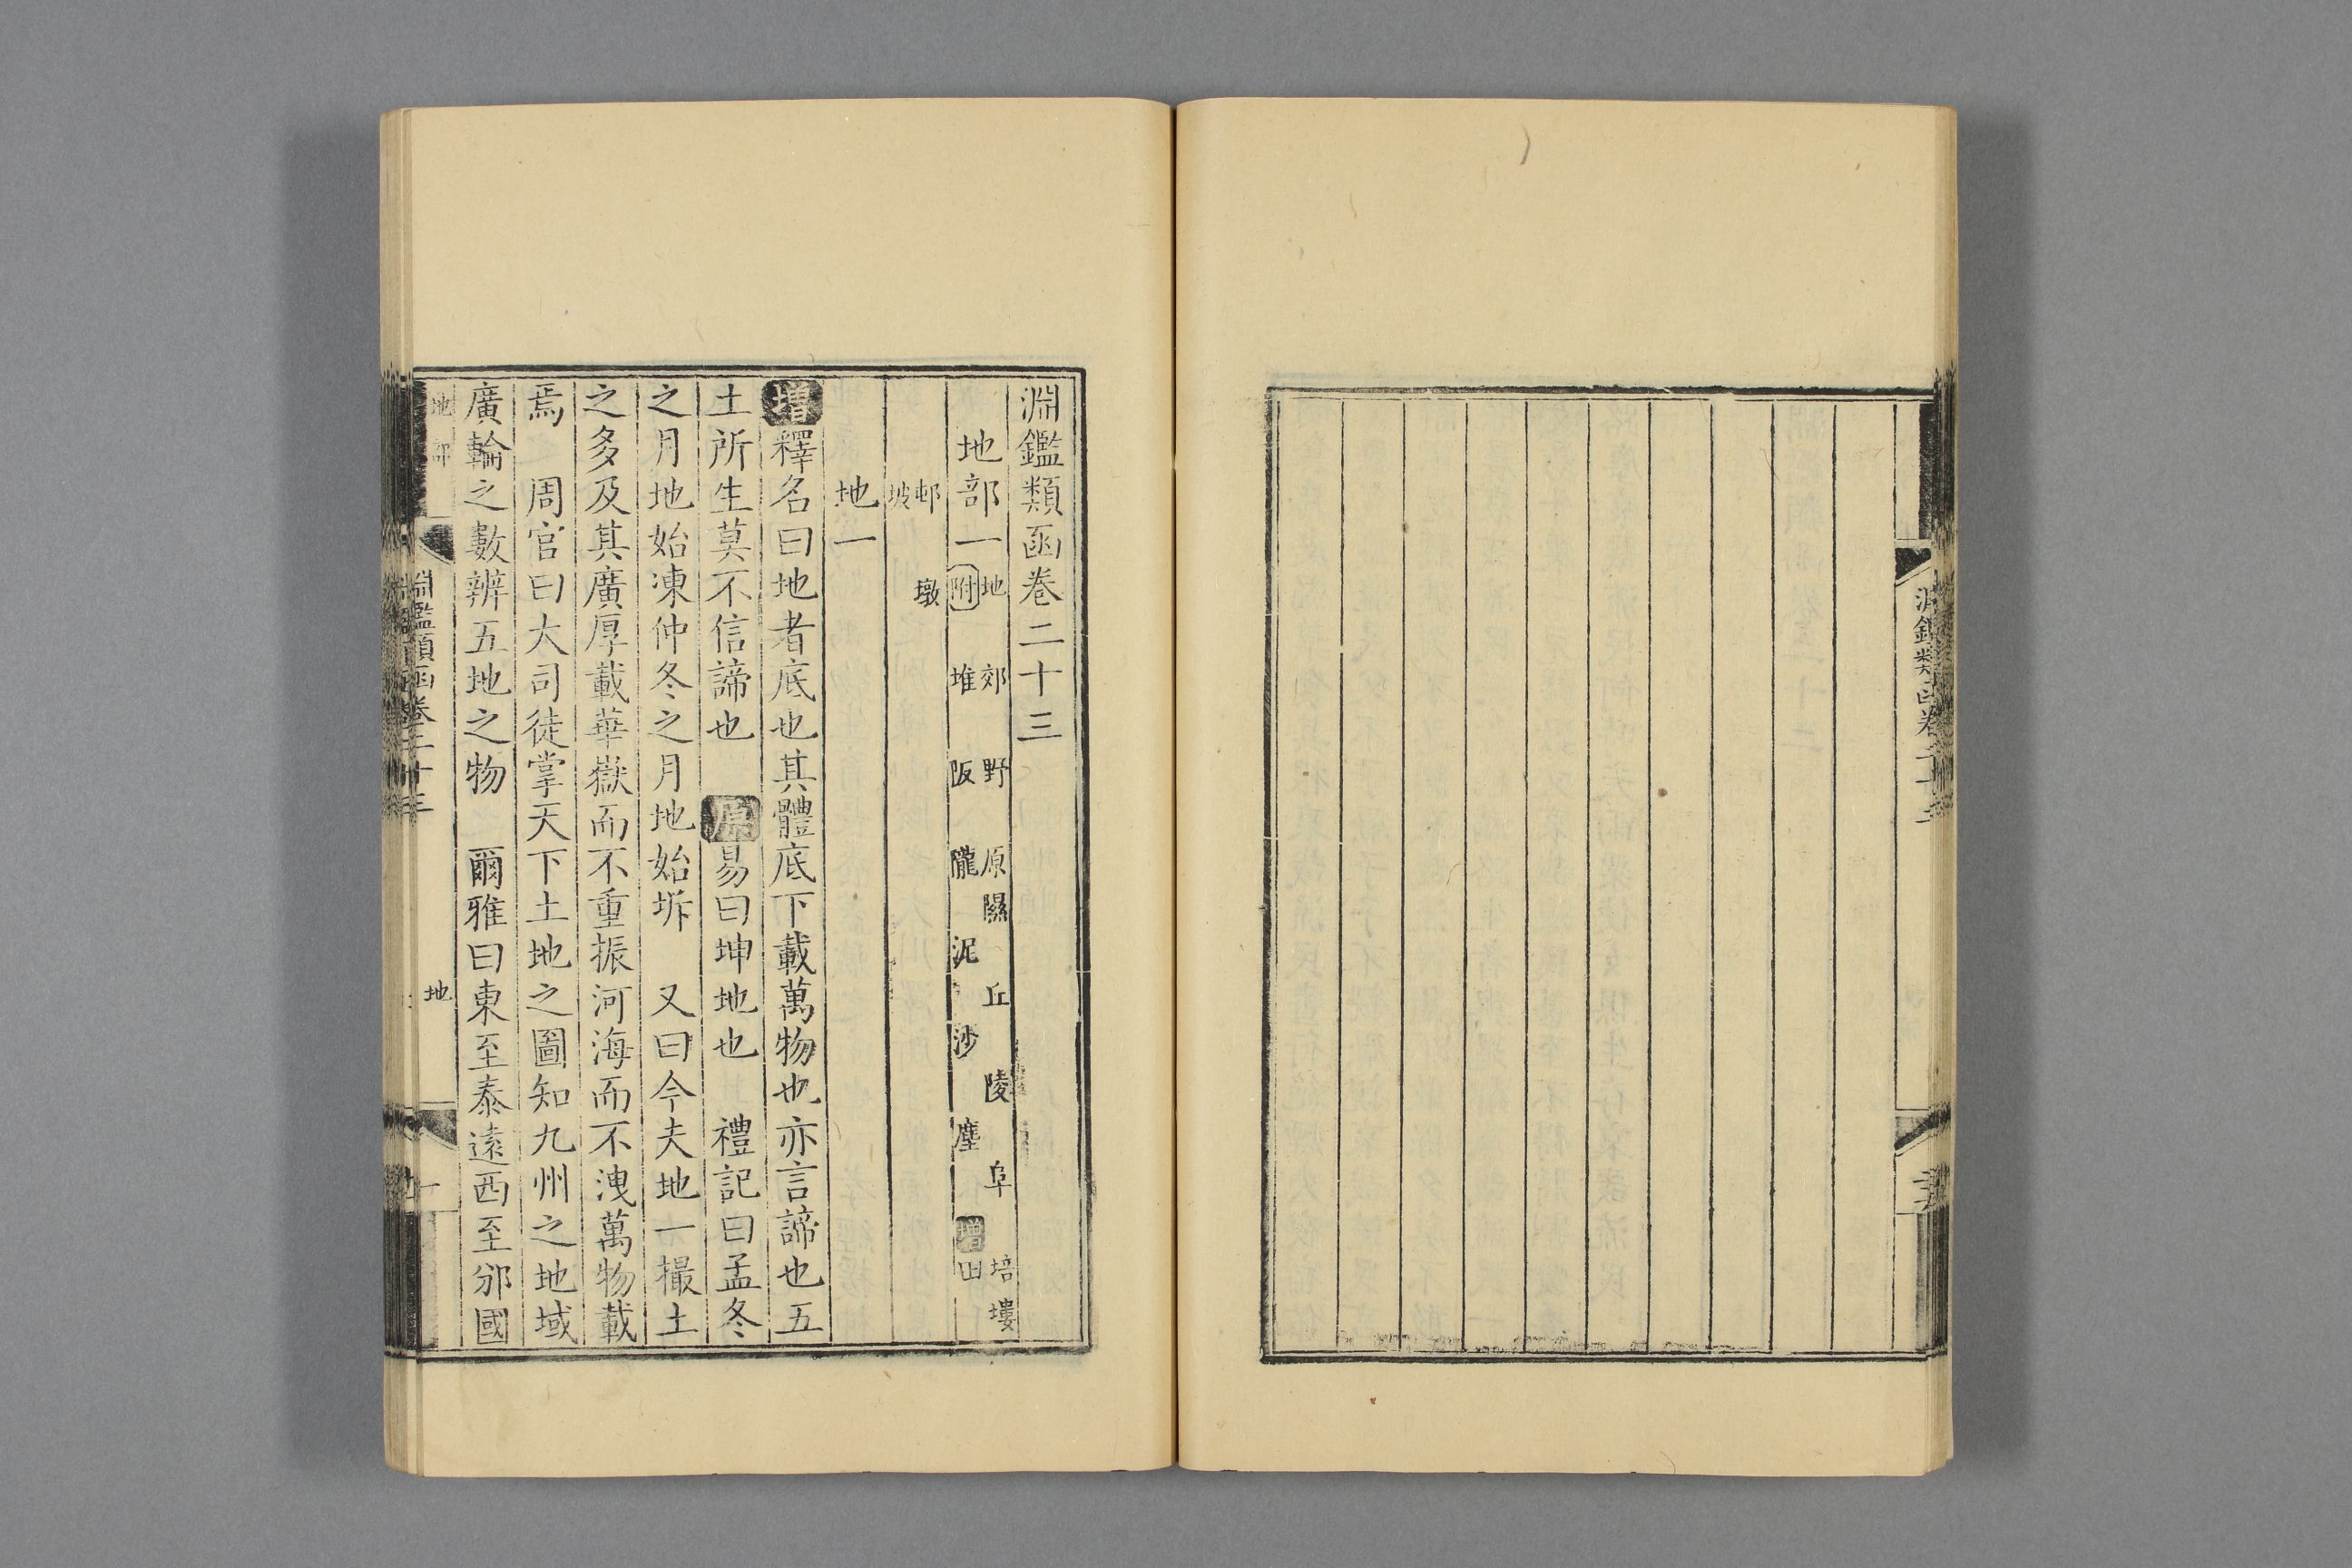 淵鑑類函卷二十三
地部一 地 郊 野 原隰 丘 陵 阜 培塿
附 堆 阪 隴 泥 沙 塵 增 田
邨 墩
坡
地一
增釋名曰地者底也其體底下載萬物也亦言諦也五
土所生莫不信諦也 原易曰坤地也 禮記曰孟冬
之月地始凍仲冬之月地始坼 又曰今夫地一撮土
之多及其廣厚載華嶽而不重振河海而不洩萬物載
焉 周官曰大司徒掌天下土地之圖知九州之地域
廣輪之數辨五地之物 爾雅曰東至泰遠西至邠國
地部 淵鑑類函卷二十三 地 一
淵鑑類函卷二十二